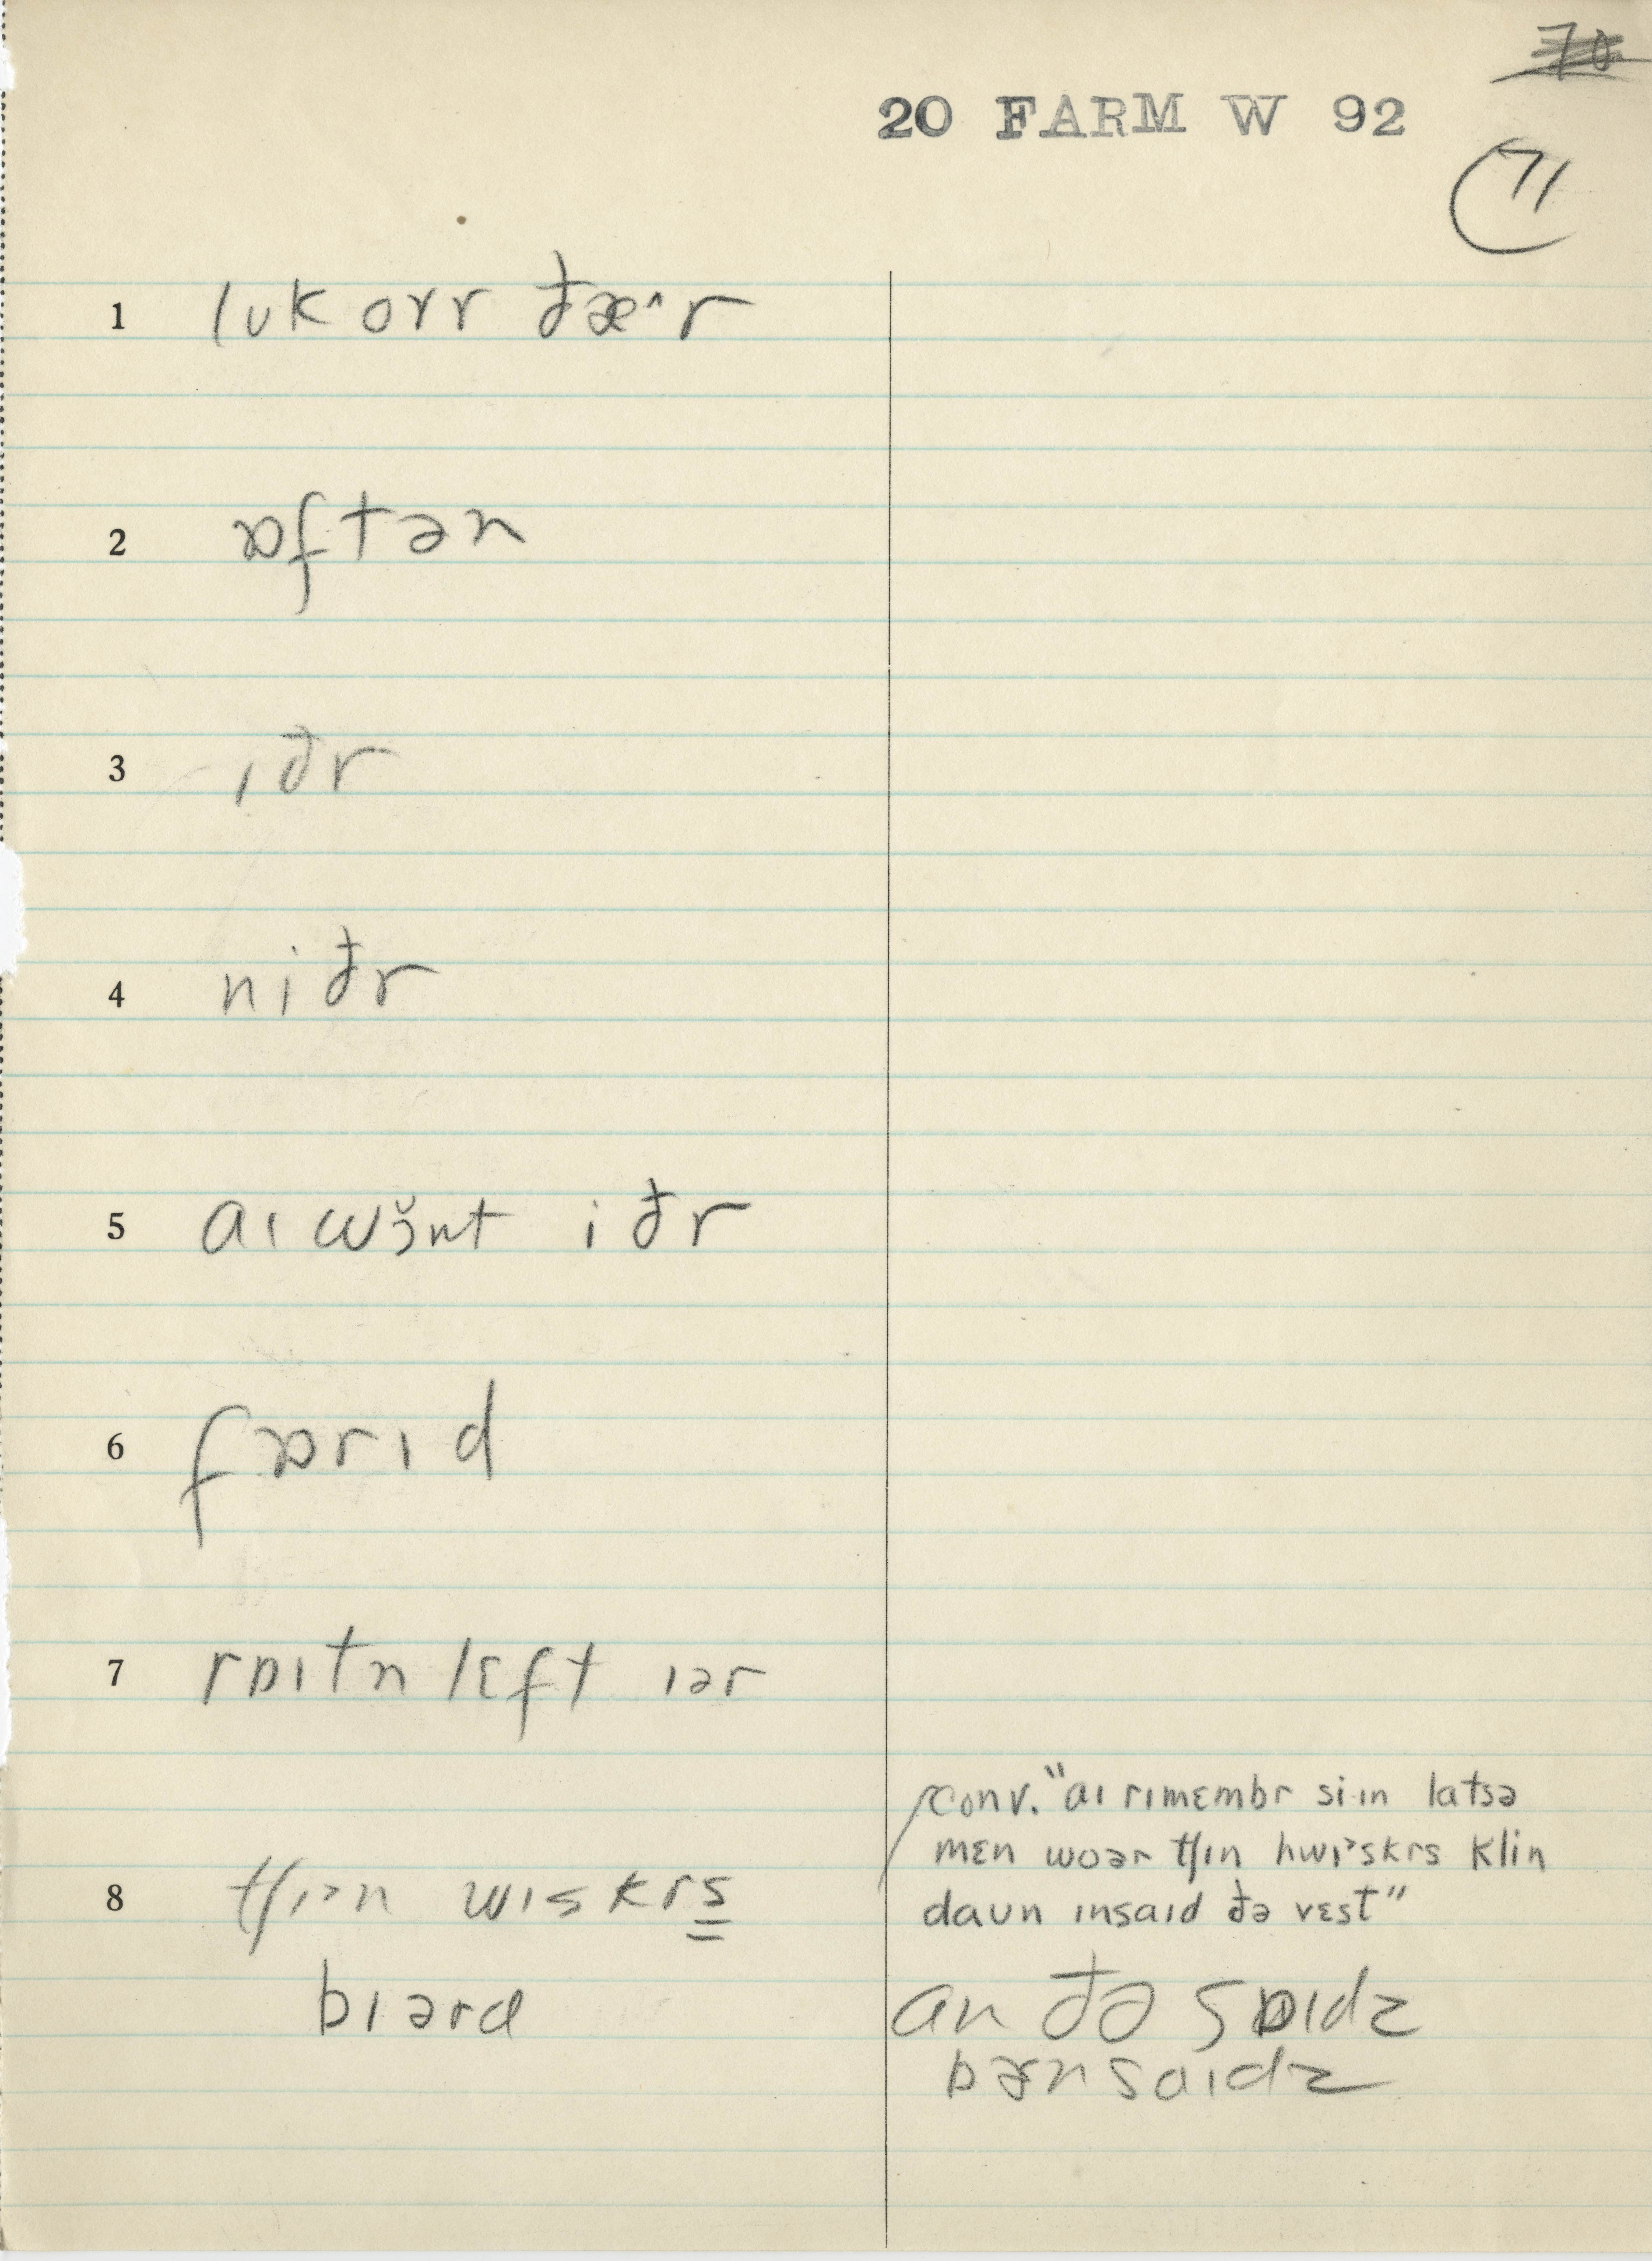 70
20 FARM W 92
71
1 lʊk oɤr ðæ˄r
2 ɒftən
3 ɪðr
4 niðr
5 aɪ wɔ̆nt iðr
6 fɒrɪd
7 rɒɪtn lɛft ɪər
8 tʃɪ˃n wɪskrs̳
bɪərd
conv. "aɪ rɪmɛmbr si·ɪn latsə
mɛn woər tʃɪn hwɪ˃skrs klin
daʊn ɪnsaɪd ðə vɛst"
an ðə sɒɪdz
bɚnsaɪdz